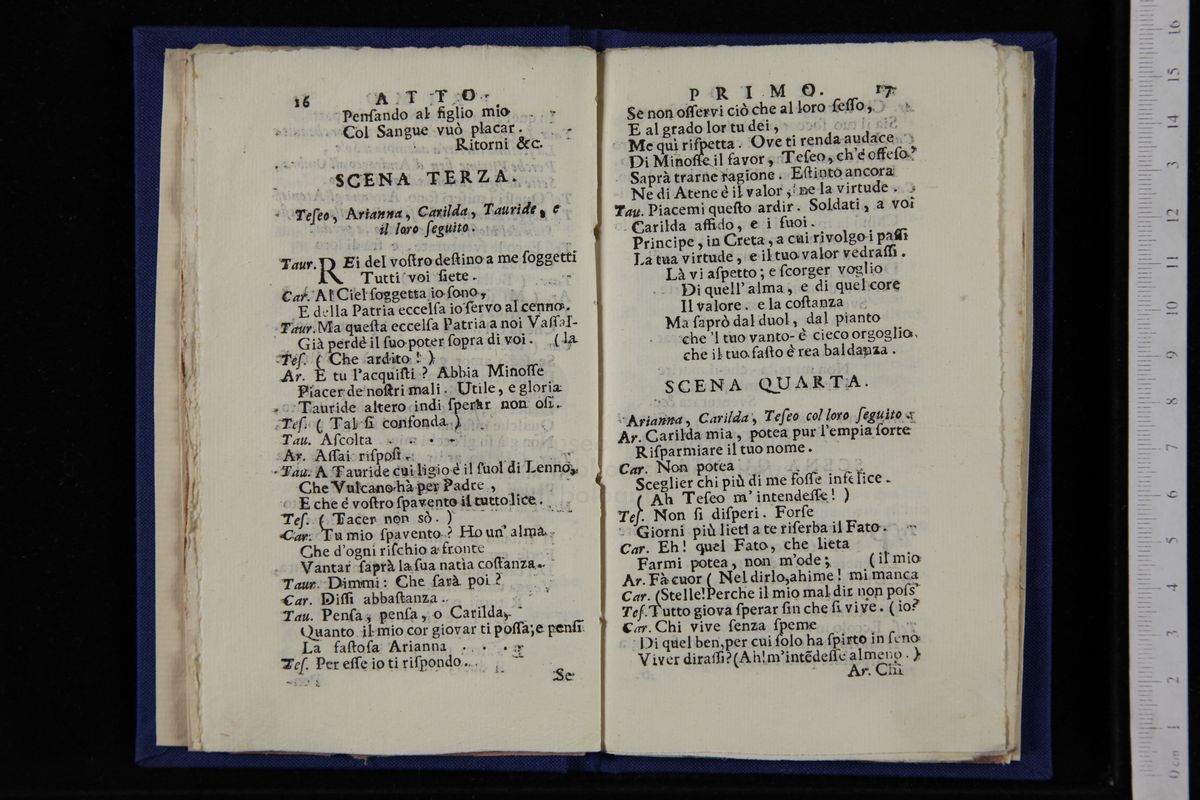 16 ATTO
Penſando al figlio mio
Col Sangue vuò placar.
Ritorni &c.
SCENA TERZA.
Teſeo, Arianna, Carilda, Tauride, e
il loro ſeguito.
Taur. REi del voſtro deſtino a me ſoggetti
Tutti voi ſiete.
Car. Al Ciel ſoggetta io ſono,
E della Patria eccelſa io ſervo al cenno.
Taur. Ma queſta eccelſa Patria a noi Vaſſal-
Già perdè il ſuo poter ſopra di voi. (la
Teſ. ( Che ardito ! )
Ar. E tu l'acquiſti ? Abbia Minoſſe
Piacer de noſtri mali. Utile, e gloria
Tauride altero indi ſperar non oſi.
Teſ. ( Tal ſi confonda )
Tau. Aſcolta . . . .
Ar. Aſſai riſpoſi.
Tau. A Tauride cui ligio è il ſuol di Lenno,
Che Vulcano hà per Padre,
E che é voſtro ſpavento il tutto lice.
Teſ. ( Tacer non sò. )
Car. Tu mio ſpavento ? Ho un' alma
Che d'ogni riſchio a fronte
Vantar ſaprà la ſua natìa coſtanza.
Taur. Dimmi: Che ſarà poi ?
Car. Diſſi abbaſtanza.
Tau. Penſa, penſa, o Carilda,
Quanto il mio cor giovar ti poſſa; e penſi
La faſtoſa Arianna . . . .
Teſ. Per eſſe io ti riſpondo.
Se
PRIMO. 17
Se non oſſervi ciò che al loro ſeſſo,
E al grado lor tu dei,
Me qui riſpetta. Ove ti renda audace
Di Minoſſe il favor, Teſeo, ch'é offeſo?
Saprà trarne ragione. Eſtinto ancora
Ne di Atene è il valor, ne la virtude.
Tau. Piacemi queſto ardir. Soldati, a voi
Carilda affido, e i ſuoi.
Principe, in Creta, a cui rivolgo i paſſi
La tua virtude, e il tuo valor vedraſſi.
Là vi aſpetto; e ſcorger voglio
Di quell' alma, e di quel core
Il valore. e la coſtanza
Ma ſaprò dal duol, dal pianto
che 'l tuo vanto è cieco orgoglio
che il tuo faſto è rea baldanza.
SCENA QUARTA.
Arianna, Carilda, Teſeo col loro ſeguito.
Ar. Carilda mia, potea pur l'empia ſorte
Riſparmiare il tuo nome.
Car. Non potea
Sceglier chi più di me foſſe infelice.
( Ah Teſeo m' intendeſſe ! )
Teſ. Non ſi diſperi. Forſe
Giorni più lieti a te riſerba il Fato.
Car. Eh! quel Fato, che lieta
Farmi potea, non m'ode; (il mio
Ar. Fà cuor ( Nel dirlo, ahime ! mi manca
Car. (Stelle! Perche il mio mal dir non poſs'
Teſ. Tutto giova ſperar ſin che ſi vive. (io?
Car. Chi vive ſenza ſpeme
Di quel ben, per cui ſolo ha ſpirto in ſeno
Viver diraſſi? (Ah! m'intẽdeſſe almeno.)
Ar. Chi